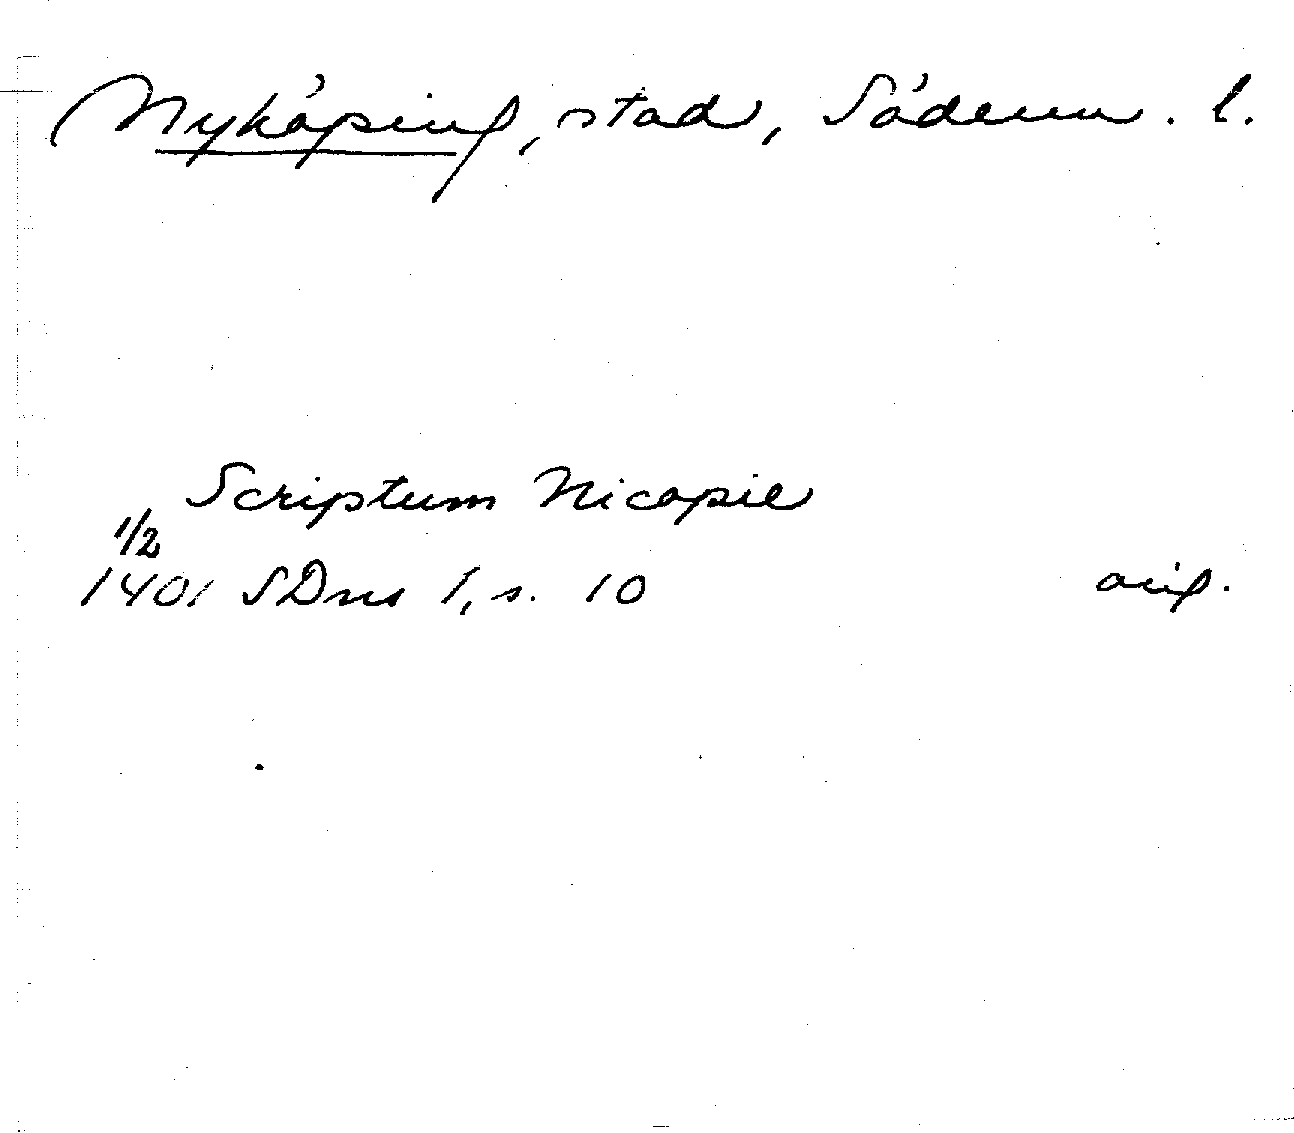 Nyköping, stad, Söderm. l.
Scriptum Nicopie
1/2
1401 SDns 1, s. 10 orig.